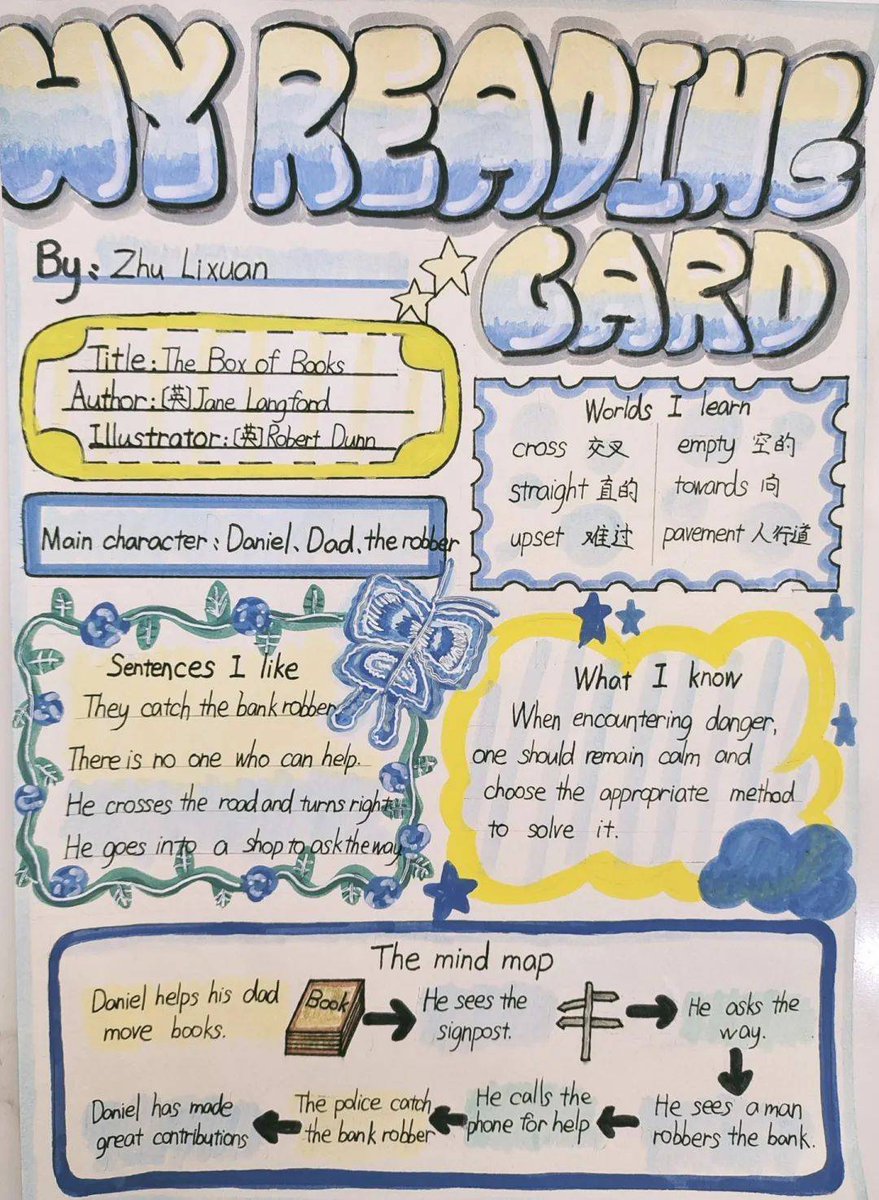 MY READING
CARD
By: Zhu Lixuan
Title: The Box of Books
Author: [英] Jane Langford
Illustrator: [英] Robert Dunn
Main character: Daniel、Dad、the robber
Worlds I learn
cross 交叉
empty 空的
straight 直的
towards 向
upset 难过
pavement 人行道
Sentences I like
They catch the bank robber
There is no one who can help.
He crosses the road and turns right
He goes into a shop to ask the way
What I know
When encountering danger,
one should remain calm and
choose the appropriate method
to solve it.
The mind map
Daniel helps his dad
move books.
Book
He sees the
signpost.
He asks the
way.
He sees a man
robbers the bank.
He calls the
phone for help
The police catch
the bank robber
Daniel has made
great contributions